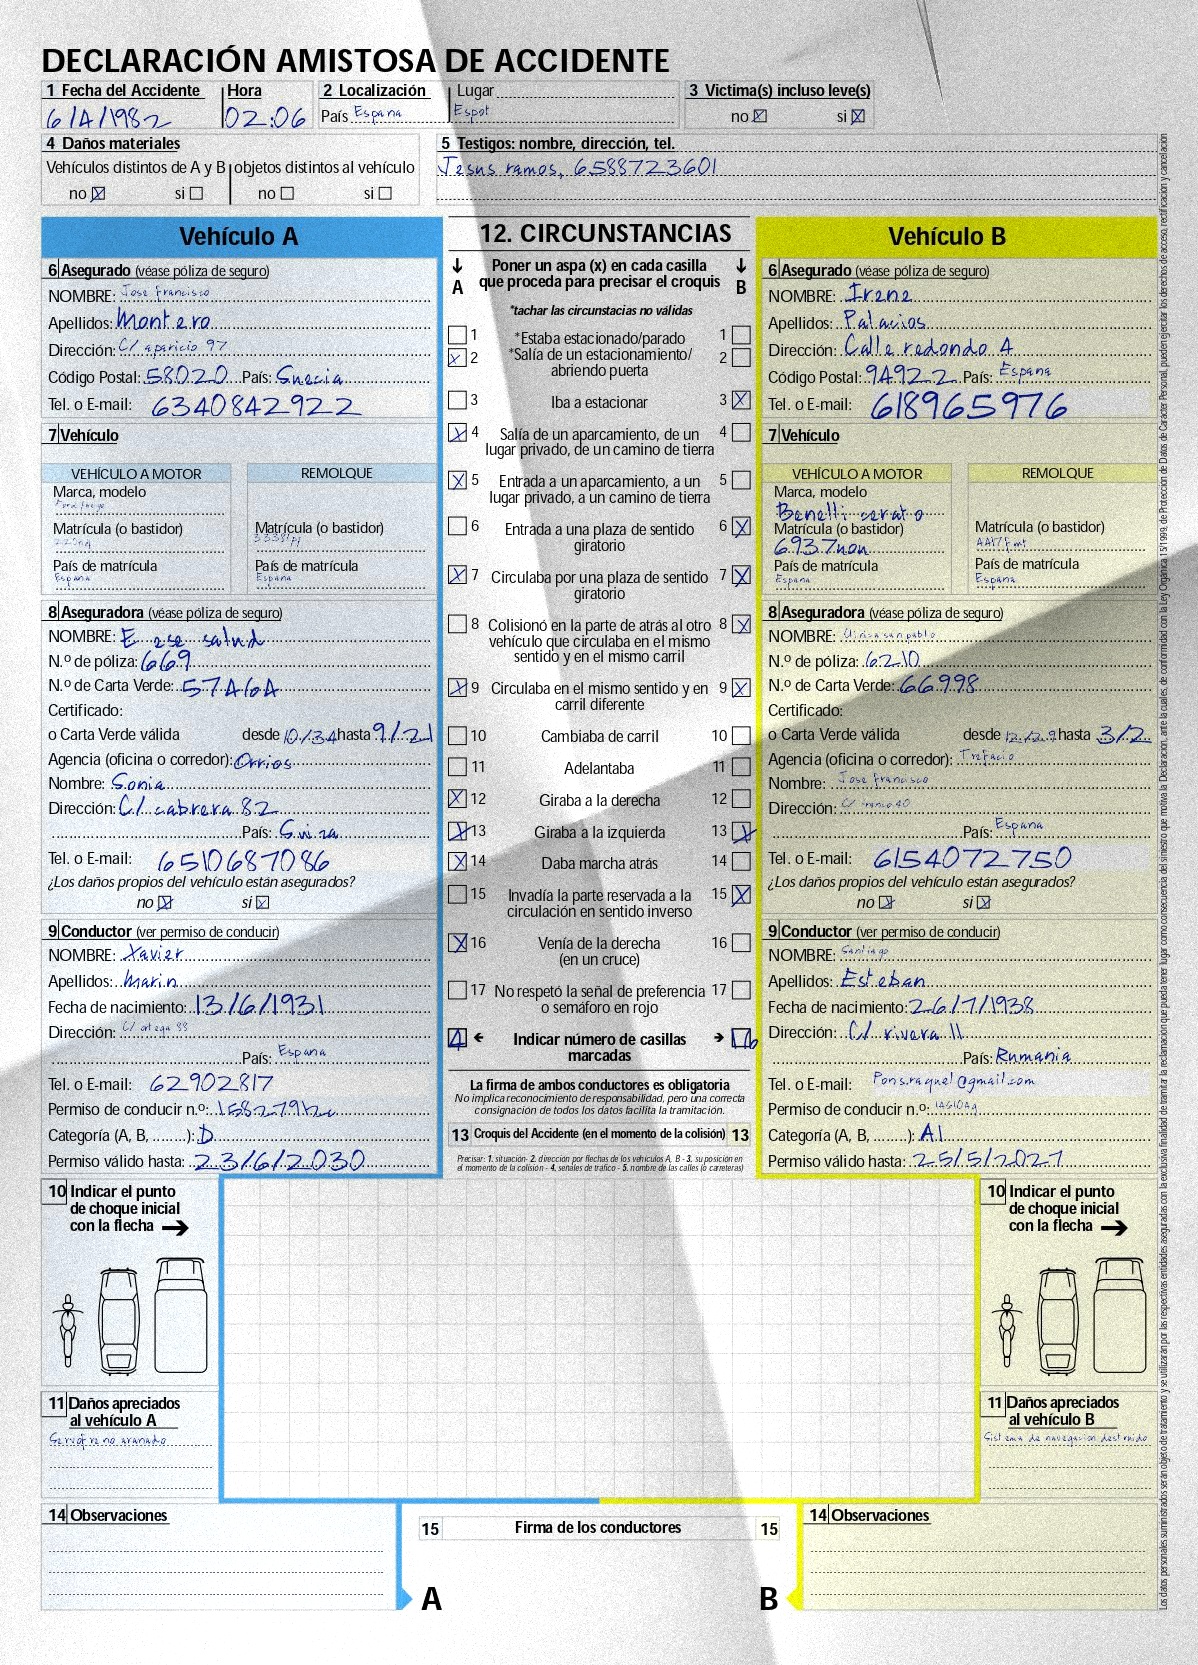 DECLARACIÓN AMISTOSA DE ACCIDENTE
1 Fecha del Accidente Hora 2 Localización Lugar 3 Victima(s) incluso leve(s)
6/4/1982 02:06 País Espana Espot no si
4 Daños materiales 5 Testigos: nombre, dirección, tel.
Vehículos distintos de A y B objetos distintos al vehículo Jesus ramos, 6588723601
no si no si
Vehículo A 12. CIRCUNSTANCIAS Vehículo B
A Poner un aspa (x) en cada casilla que proceda para precisar el croquis B
*tachar las circunstacias no válidas
6 Asegurado (véase póliza de seguro)
NOMBRE: Jose Francisco
Apellidos: Montero
Dirección: C/ aparicio 97
Código Postal: 58020 País: Suecia
Tel. o E-mail: 6340842922
7 Vehículo
VEHÍCULO A MOTOR REMOLQUE
Marca, modelo
Matrícula (o bastidor) Matrícula (o bastidor)
País de matrícula País de matrícula
Espana Espana
8 Aseguradora (véase póliza de seguro)
NOMBRE: E ese salud
N.º de póliza: 669
N.º de Carta Verde: 57464
Certificado:
o Carta Verde válida desde 10/34 hasta 9/21
Agencia (oficina o corredor): Orrios
Nombre: Sonia
Dirección: C/ cabrera 82
País: Suiza
Tel. o E-mail: 6510687086
¿Los daños propios del vehículo están asegurados?
no si
9 Conductor (ver permiso de conducir)
NOMBRE: Xavier
Apellidos: Marin
Fecha de nacimiento: 13/6/1931
Dirección: C/ ortega 88
País: Espana
Tel. o E-mail: 62902817
Permiso de conducir n.º:
Categoría (A, B, ........): D
Permiso válido hasta: 23/6/2030
1 *Estaba estacionado/parado 1
2 *Salía de un estacionamiento/ abriendo puerta 2
3 Iba a estacionar 3
4 Salía de un aparcamiento, de un lugar privado, de un camino de tierra 4
5 Entrada a un aparcamiento, a un lugar privado, a un camino de tierra 5
6 Entrada a una plaza de sentido giratorio 6
7 Circulaba por una plaza de sentido giratorio 7
8 Colisionó en la parte de atrás al otro vehículo que circulaba en el mismo sentido y en el mismo carril 8
9 Circulaba en el mismo sentido y en carril diferente 9
10 Cambiaba de carril 10
11 Adelantaba 11
12 Giraba a la derecha 12
13 Giraba a la izquierda 13
14 Daba marcha atrás 14
15 Invadía la parte reservada a la circulación en sentido inverso 15
16 Venía de la derecha (en un cruce) 16
17 No respetó la señal de preferencia o semáforo en rojo 17
4 Indicar número de casillas marcadas 16
La firma de ambos conductores es obligatoria
No implica reconocimiento de responsabilidad, pero una correcta
consignación de todos los datos facilita la tramitación.
13 Croquis del Accidente (en el momento de la colisión) 13
Precisar: 1. situación- 2. dirección por flechas de los vehículos A, B - 3. su posición en
el momento de la colisión - 4, señales de tráfico - 5. nombre de las calles (o carreteras)
6 Asegurado (véase póliza de seguro)
NOMBRE: Irene
Apellidos: Palacios
Dirección: Calle redondo 4
Código Postal: 94922 País: Espana
Tel. o E-mail: 618965976
7 Vehículo
VEHÍCULO A MOTOR REMOLQUE
Marca, modelo
Benelli cerato
Matrícula (o bastidor) Matrícula (o bastidor)
6937non
País de matrícula País de matrícula
Espana Espana
8 Aseguradora (véase póliza de seguro)
NOMBRE: Clinica san pablo
N.º de póliza: 6210
N.º de Carta Verde: 66998
Certificado:
o Carta Verde válida desde 12/2.9 hasta 3/2
Agencia (oficina o corredor): Trefacio
Nombre: Jose Francisco
Dirección: C/
País: Espana
Tel. o E-mail: 6154072750
¿Los daños propios del vehículo están asegurados?
no si
9 Conductor (ver permiso de conducir)
NOMBRE: Santiago
Apellidos: Esteban
Fecha de nacimiento: 26/7/1938
Dirección: C/ rivera 11
País: Rumania
Tel. o E-mail: Pons.raquel@gmail.com
Permiso de conducir n.º:
Categoría (A, B, ........): A1
Permiso válido hasta: 25/5/2027
10 Indicar el punto de choque inicial con la flecha
10 Indicar el punto de choque inicial con la flecha
11 Daños apreciados al vehículo A
Servofreno aranado
11 Daños apreciados al vehículo B
Sistema de navegacion destruido
14 Observaciones 15 Firma de los conductores 15 14 Observaciones
A B
Los datos personales suministrados serán objeto de tratamiento y se utilizarán por las respectivas entidades aseguradas con la exclusiva finalidad de tramitar la reclamación que pueda tener lugar como consecuencia del siniestro que motiva la Declaración, ante la cuales, de conformidad con la Ley Orgánica 15/1999, de Protección de Datos de Carácter Personal, pueden ejercitar los derechos de acceso, rectificación y cancelación